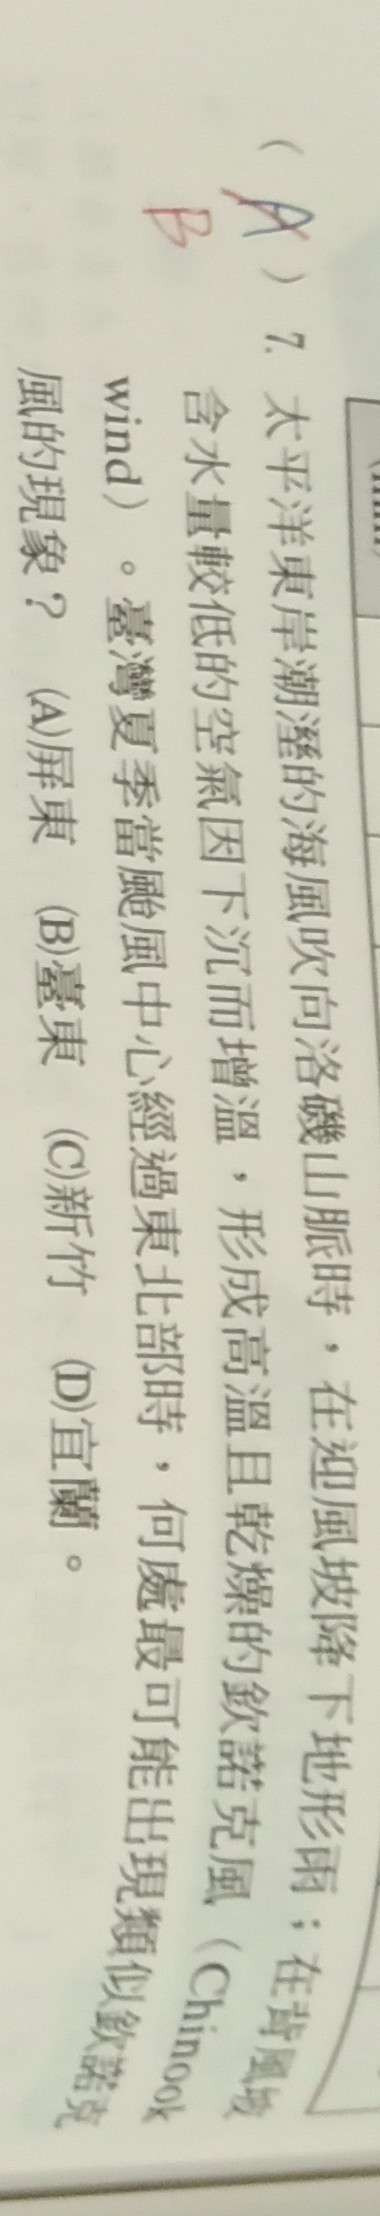 ( A ) 7. 太平洋東岸潮溼的海風吹向洛磯山脈時，在迎風坡降下地形雨；在背風坡
B 含水量較低的空氣因下沉而增溫，形成高溫且乾燥的欽諾克風（Chinook
wind）。臺灣夏季當颱風中心經過東北部時，何處最可能出現類似欽諾克
風的現象？ (A)屏東 (B)臺東 (C)新竹 (D)宜蘭。